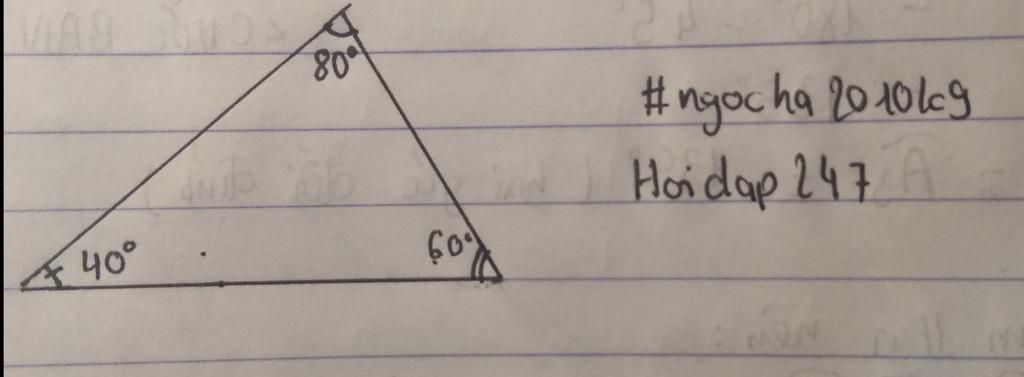 80°
#ngocha2010lc9
Hoidap247
40°
60°